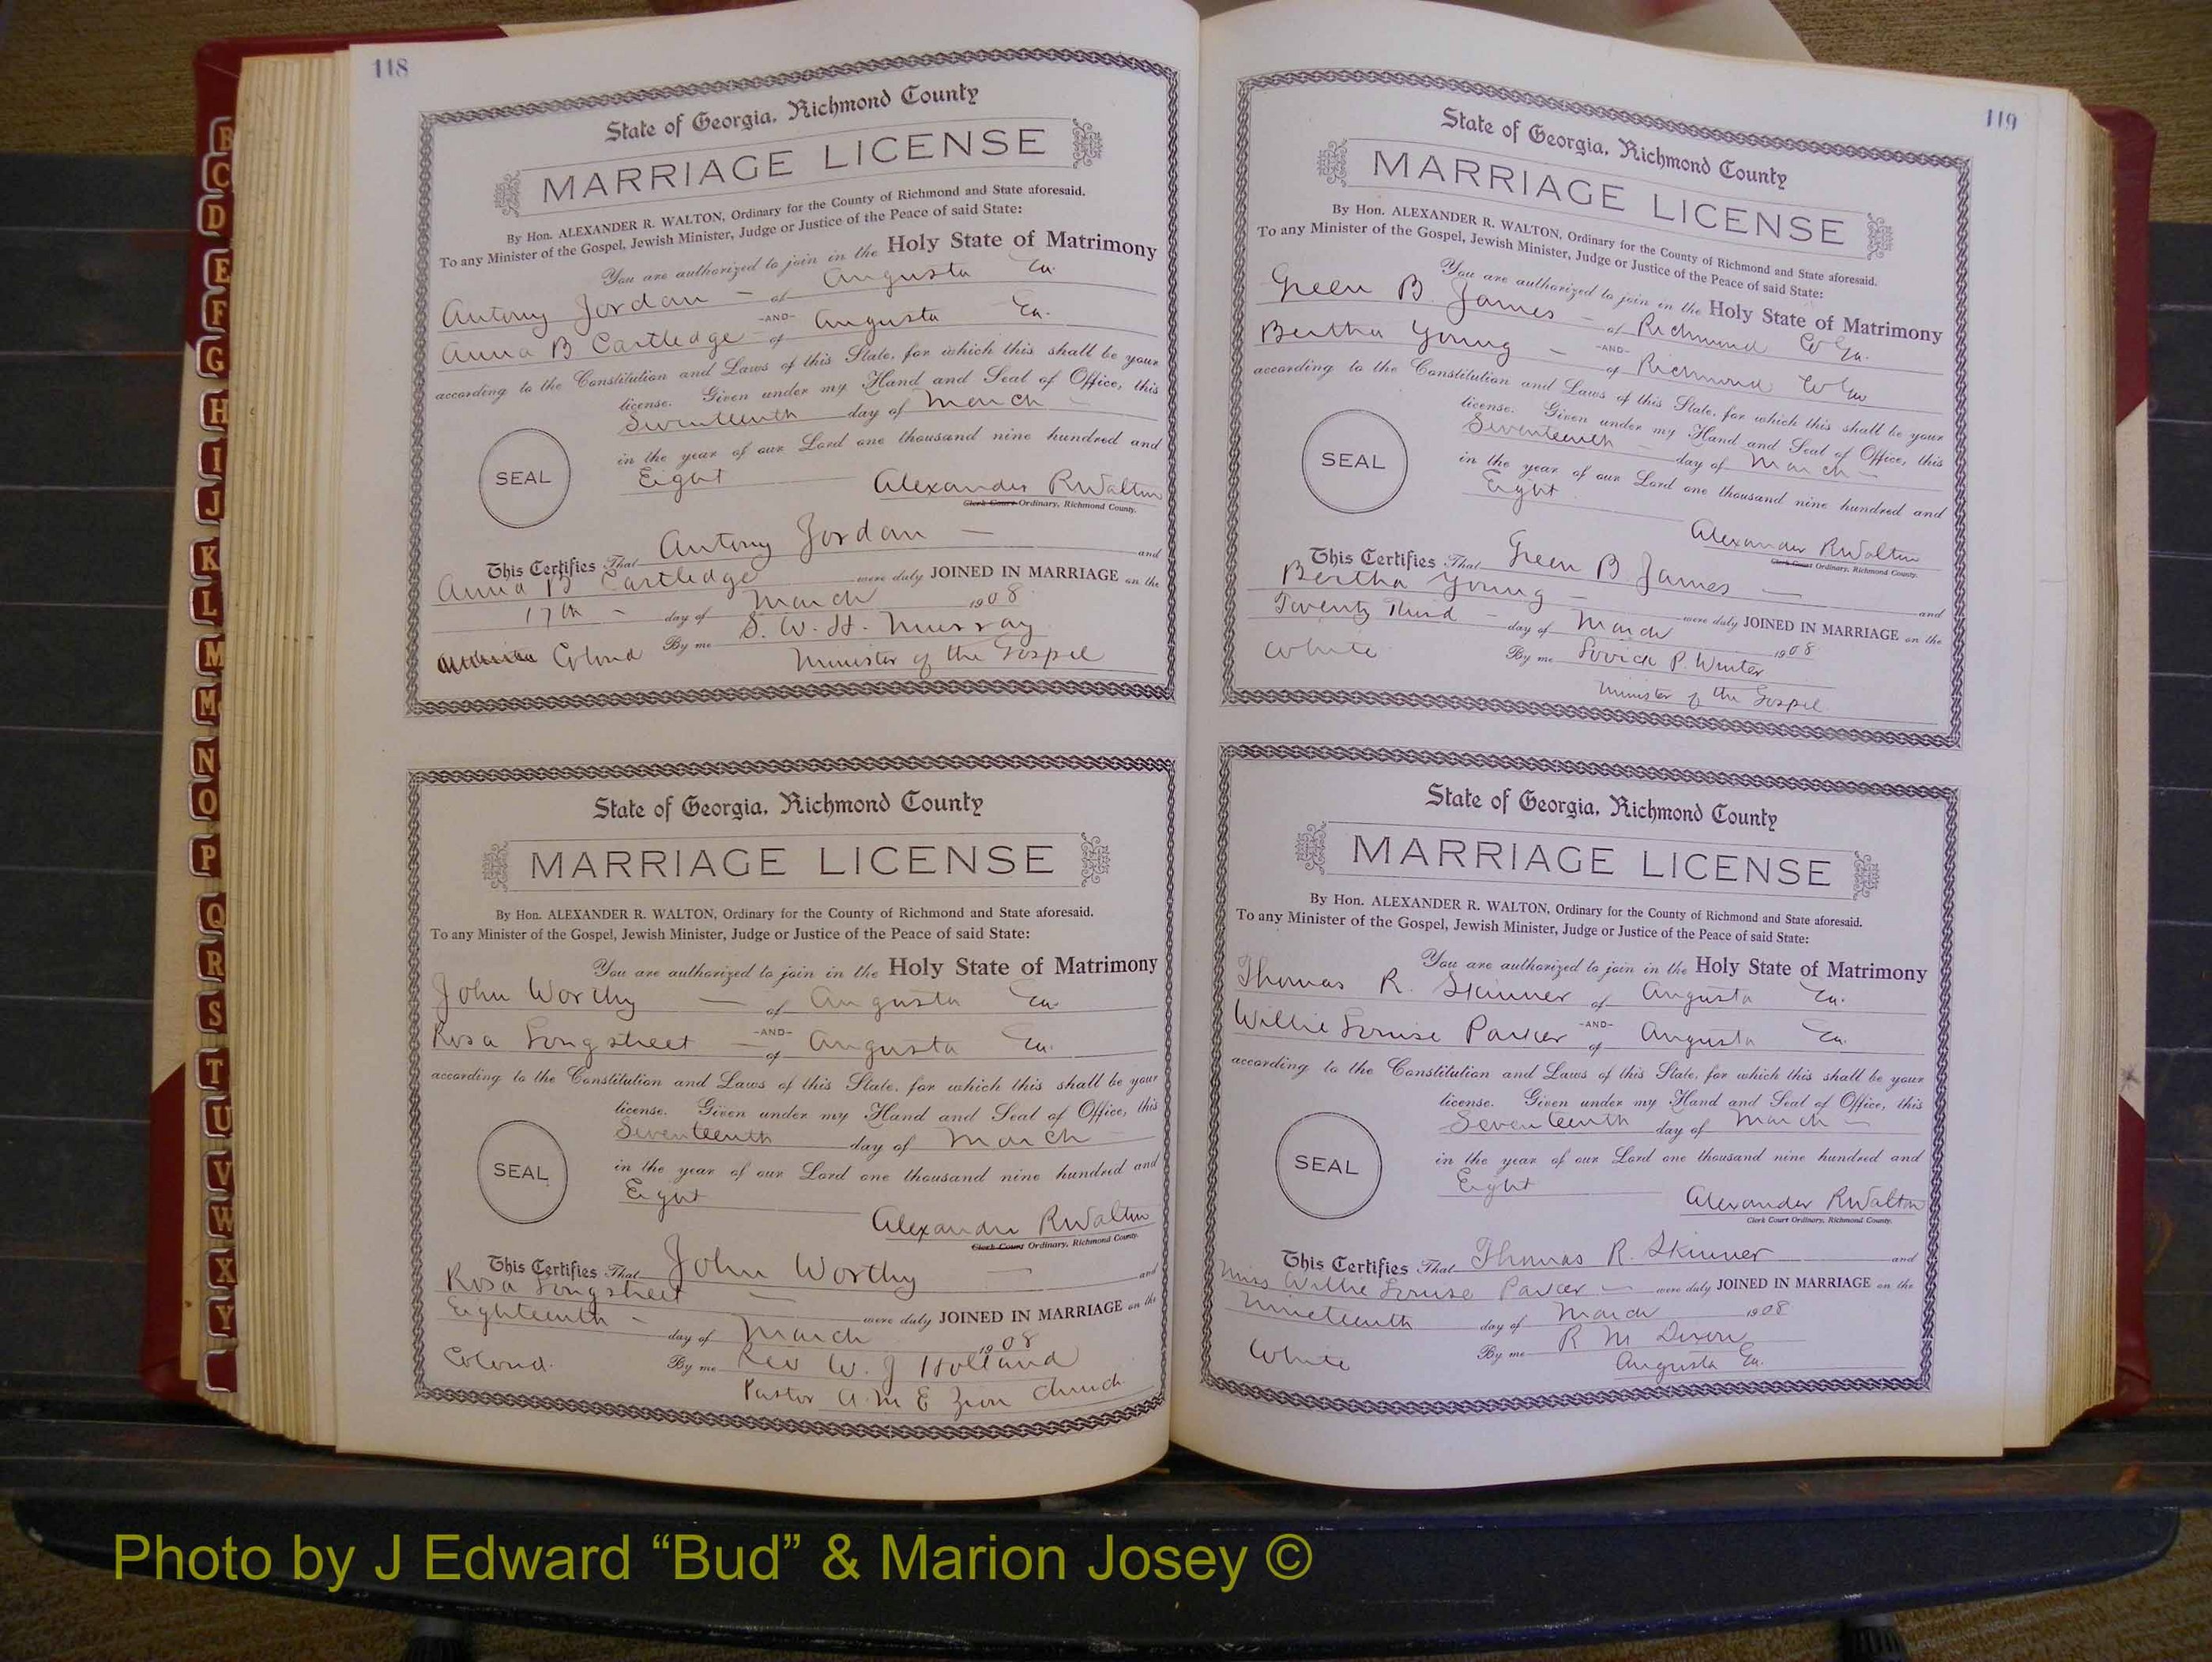 118
State of Georgia, Richmond County
MARRIAGE LICENSE
By Hon. ALEXANDER R. WALTON, Ordinary for the County of Richmond and State aforesaid.
To any Minister of the Gospel, Jewish Minister, Judge or Justice of the Peace of said State:
You are authorized to join in the Holy State of Matrimony
Antony Jordan — of Augusta Ga.
-AND-
Anna B Cartledge — of Augusta Ga.
according to the Constitution and Laws of this State, for which this shall be your
license. Given under my Hand and Seal of Office, this
Seventeenth day of March —
in the year of our Lord one thousand nine hundred and
Eight
SEAL
Alexander R Walton
Clerk Court Ordinary, Richmond County.
This Certifies That Antony Jordan — and
Anna B Cartledge were duly JOINED IN MARRIAGE on the
17th — day of March 1908
By me S. W. H. Murray
Colored Minister of the Gospel
State of Georgia, Richmond County
MARRIAGE LICENSE
By Hon. ALEXANDER R. WALTON, Ordinary for the County of Richmond and State aforesaid.
To any Minister of the Gospel, Jewish Minister, Judge or Justice of the Peace of said State:
You are authorized to join in the Holy State of Matrimony
John Worthy — of Augusta Ga.
-AND-
Rosa Longstreet — of Augusta Ga.
according to the Constitution and Laws of this State, for which this shall be your
license. Given under my Hand and Seal of Office, this
Seventeenth day of March —
in the year of our Lord one thousand nine hundred and
Eight
SEAL
Alexander R Walton
Clerk Court Ordinary, Richmond County.
This Certifies That John Worthy — and
Rosa Longstreet — were duly JOINED IN MARRIAGE on the
Eighteenth — day of March 1908
Colored. By me Rev W. J Holland
Pastor A. M E Zion Church
119
State of Georgia, Richmond County
MARRIAGE LICENSE
By Hon. ALEXANDER R. WALTON, Ordinary for the County of Richmond and State aforesaid.
To any Minister of the Gospel, Jewish Minister, Judge or Justice of the Peace of said State:
You are authorized to join in the Holy State of Matrimony
Green B. James — of Richmond Co Ga.
-AND-
Bertha Young — of Richmond Co Ga
according to the Constitution and Laws of this State, for which this shall be your
license. Given under my Hand and Seal of Office, this
Seventeenth — day of March —
in the year of our Lord one thousand nine hundred and
Eight
SEAL
Alexander R Walton
Clerk Court Ordinary, Richmond County.
This Certifies That Green B James — and
Bertha Young — were duly JOINED IN MARRIAGE on the
Twenty Third — day of March 1908
White By me Lovick P. Winter
Minister of the Gospel
State of Georgia, Richmond County
MARRIAGE LICENSE
By Hon. ALEXANDER R. WALTON, Ordinary for the County of Richmond and State aforesaid.
To any Minister of the Gospel, Jewish Minister, Judge or Justice of the Peace of said State:
You are authorized to join in the Holy State of Matrimony
Thomas R. Skinner of Augusta Ga.
-AND-
Willie Louise Parker of Augusta Ga.
according to the Constitution and Laws of this State, for which this shall be your
license. Given under my Hand and Seal of Office, this
Seventeenth day of March —
in the year of our Lord one thousand nine hundred and
Eight
SEAL
Alexander R Walton
Clerk Court Ordinary, Richmond County.
This Certifies That Thomas R. Skinner and
Miss Willie Louise Parker — were duly JOINED IN MARRIAGE on the
Nineteenth day of March 1908
White By me R M Dixon
Augusta Ga.
B
C
D
E
F
G
H
I
J
K
L
M
M
N
O
P
Q
R
S
T
U
V
W
X
Y
Photo by J Edward “Bud” & Marion Josey ©